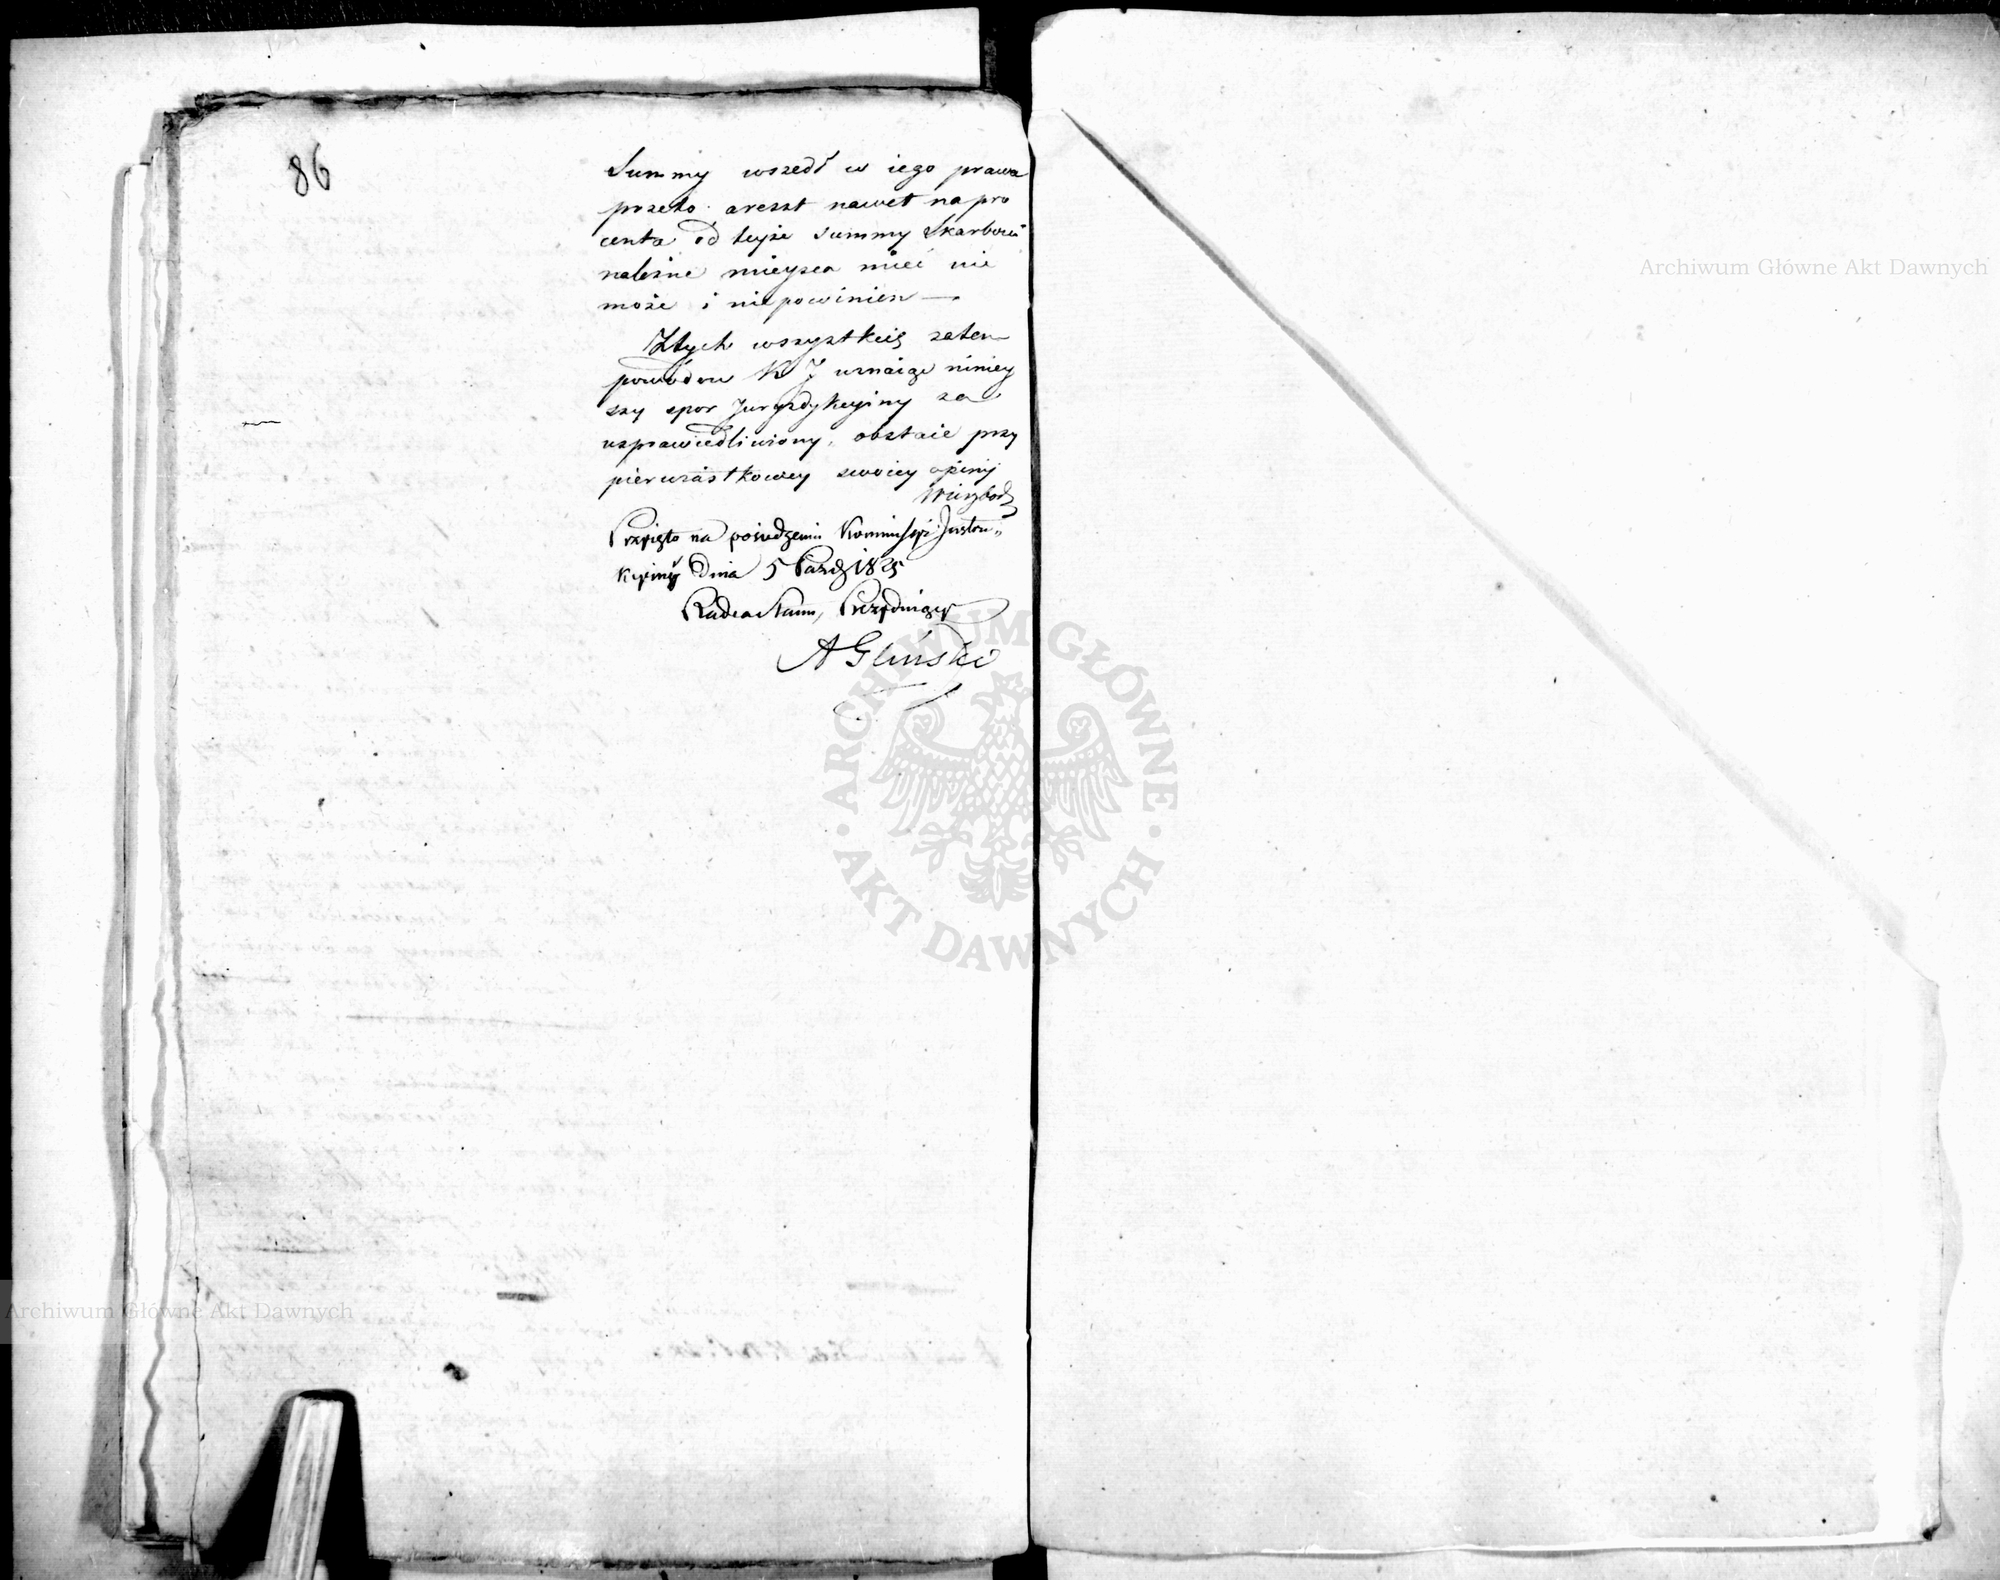 86
Summy wszedł w iego prawa
przeto areszt nawet na pro
centa od teyże summy Skarbowi
należne mieysca mieć nie
może i niepowinien —
Z tych wszystkich zatem
powodów K J uznaiąc niniey
szy spor Jurysdykcyiny za
usprawiedliwiony, obstaie przy
pierwiastkowey swoiey opinij
Przyięto na posiedzeniu Kommissyi Instru„
kcyiney Dnia 5 Paźdz 1825
Radca Stanu, Prezyduiący
A Gliński
ARCHIWUM GŁÓWNE AKT DAWNYCH
Archiwum Główne Akt Dawnych
Archiwum Główne Akt Dawnych